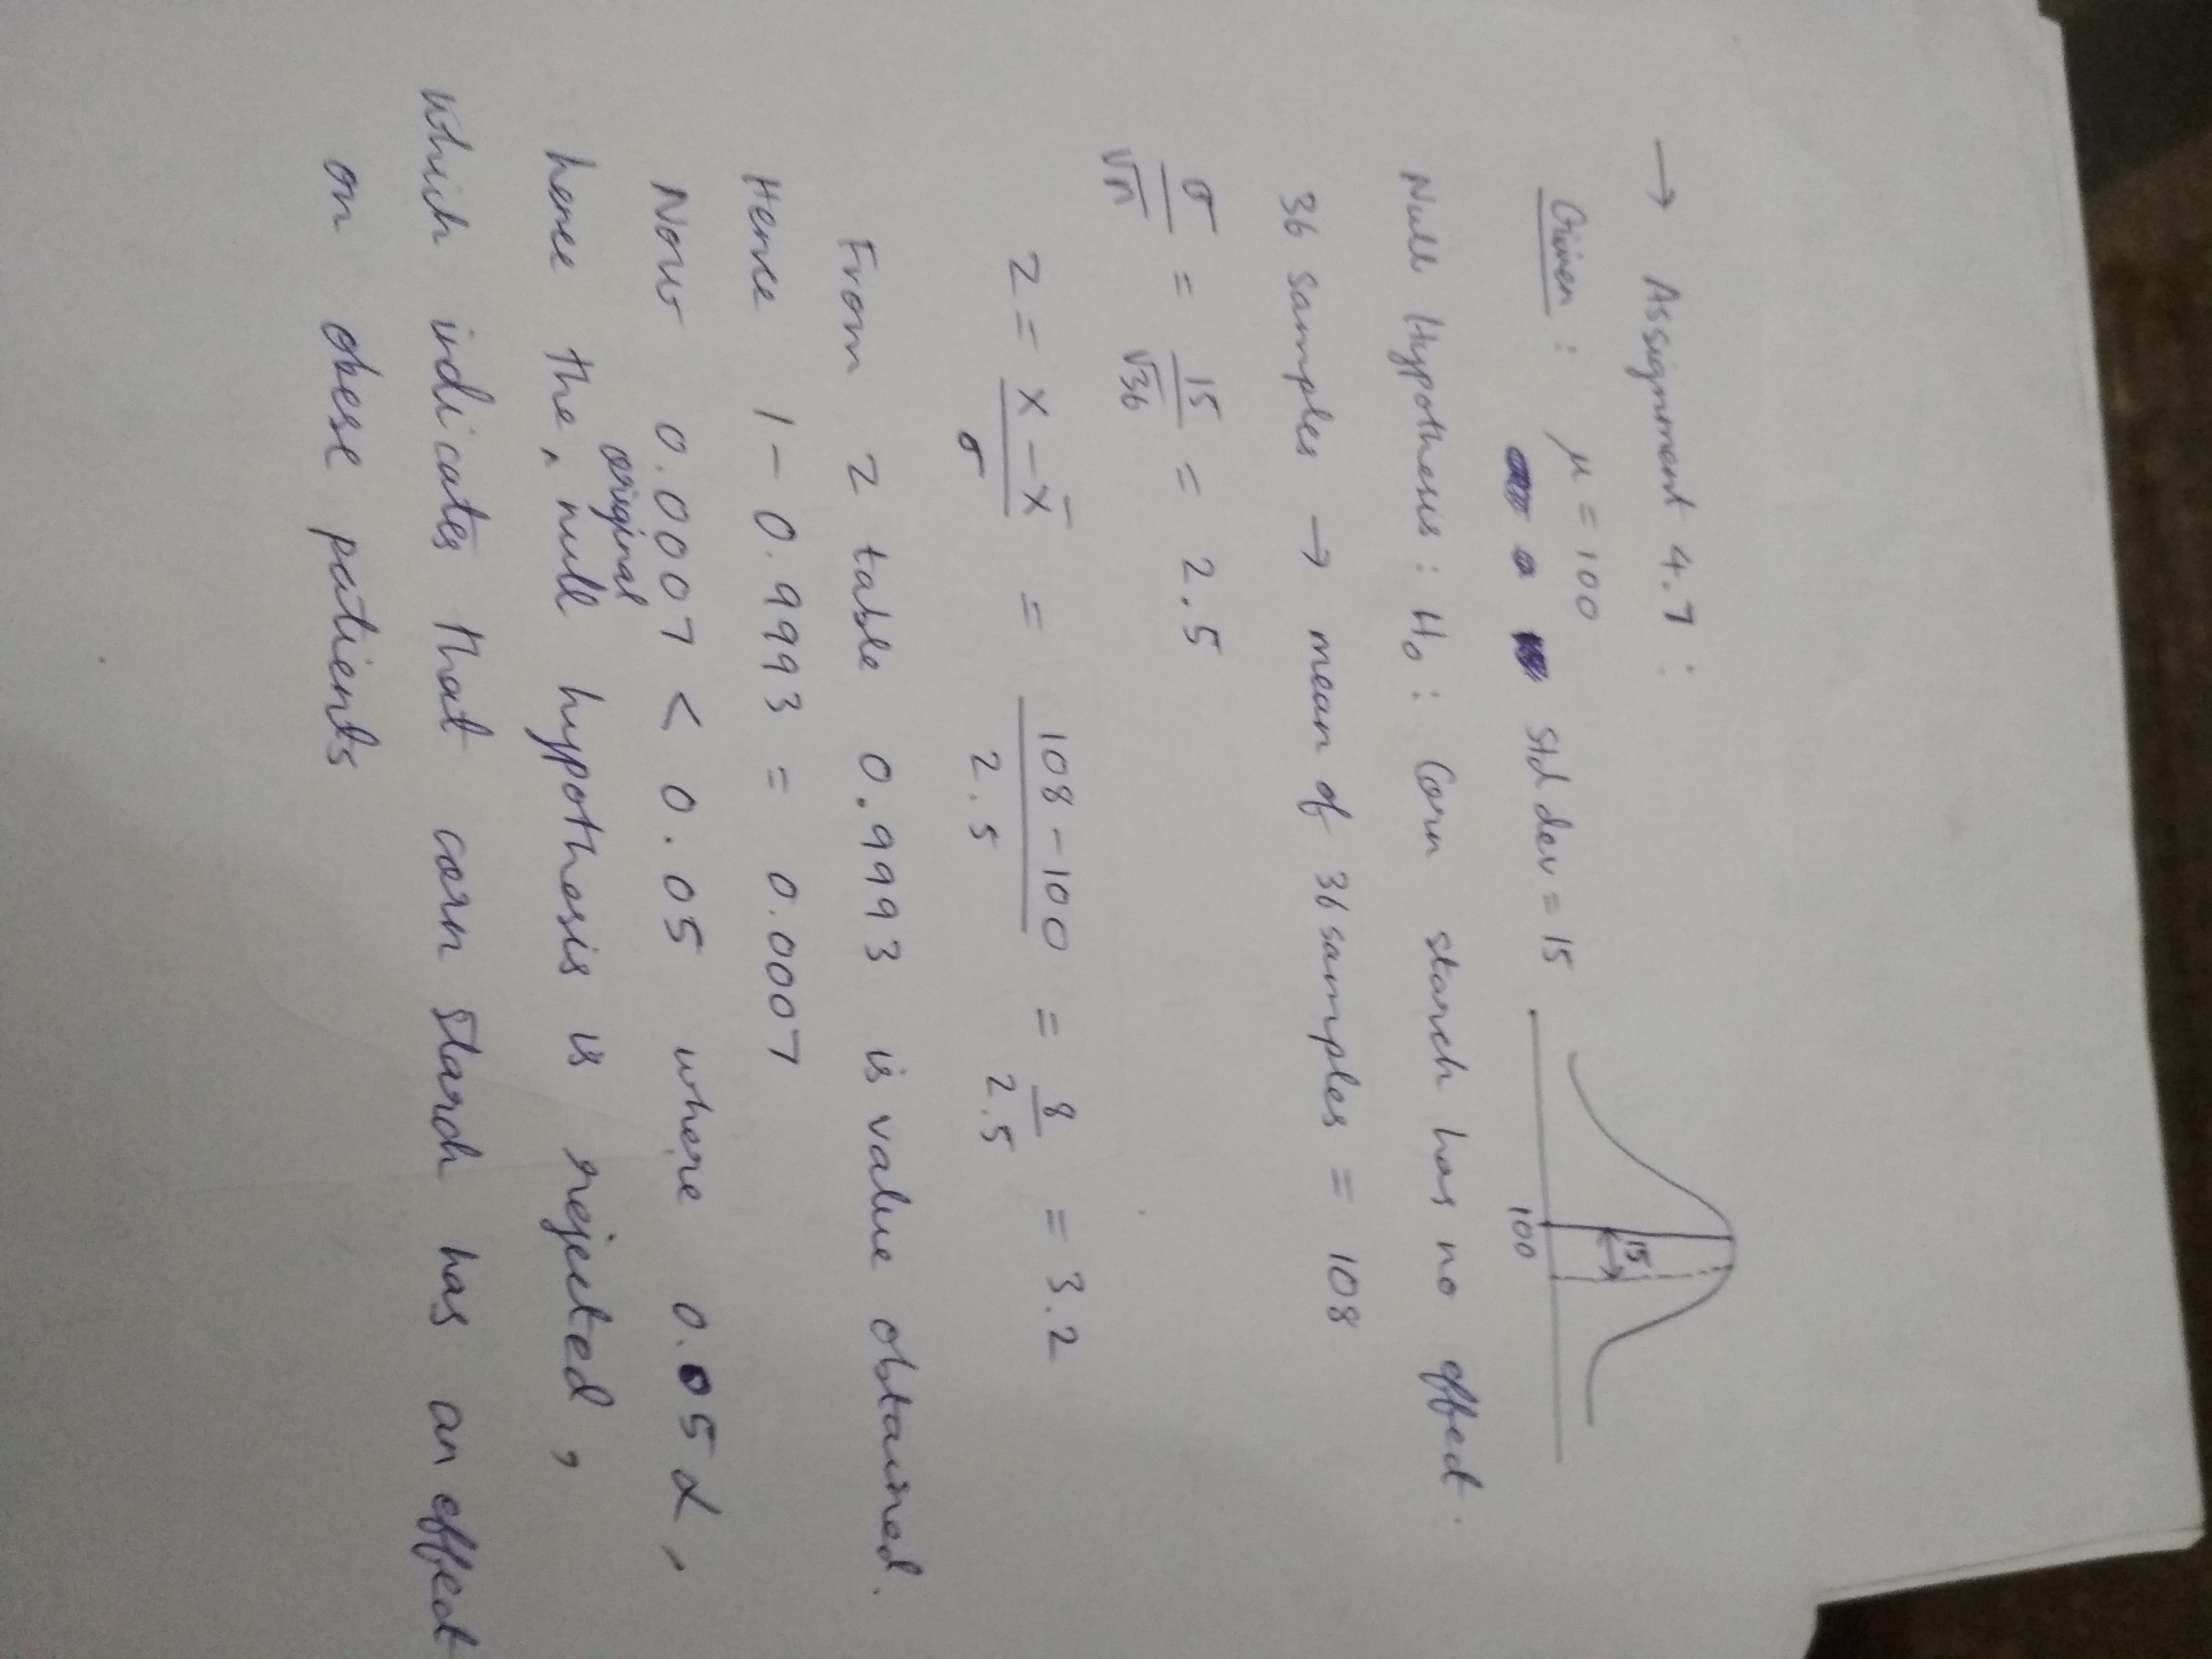 → Assignment 4.7 :
Given : μ = 100
Std dev = 15
15
100
Null Hypothesis : H₀ : Corn starch has no effect.
36 samples → mean of 36 samples = 108
σ/√n = 15/√36 = 2.5
Z = (x - x̄)/σ = (108 - 100)/2.5 = 8/2.5 = 3.2
From Z table 0.9993 is value obtained.
Hence 1 - 0.9993 = 0.0007
Now 0.0007 < 0.05 where 0.05 α,
hence the original null hypothesis is rejected,
which indicates that corn starch has an effect
on obese patients